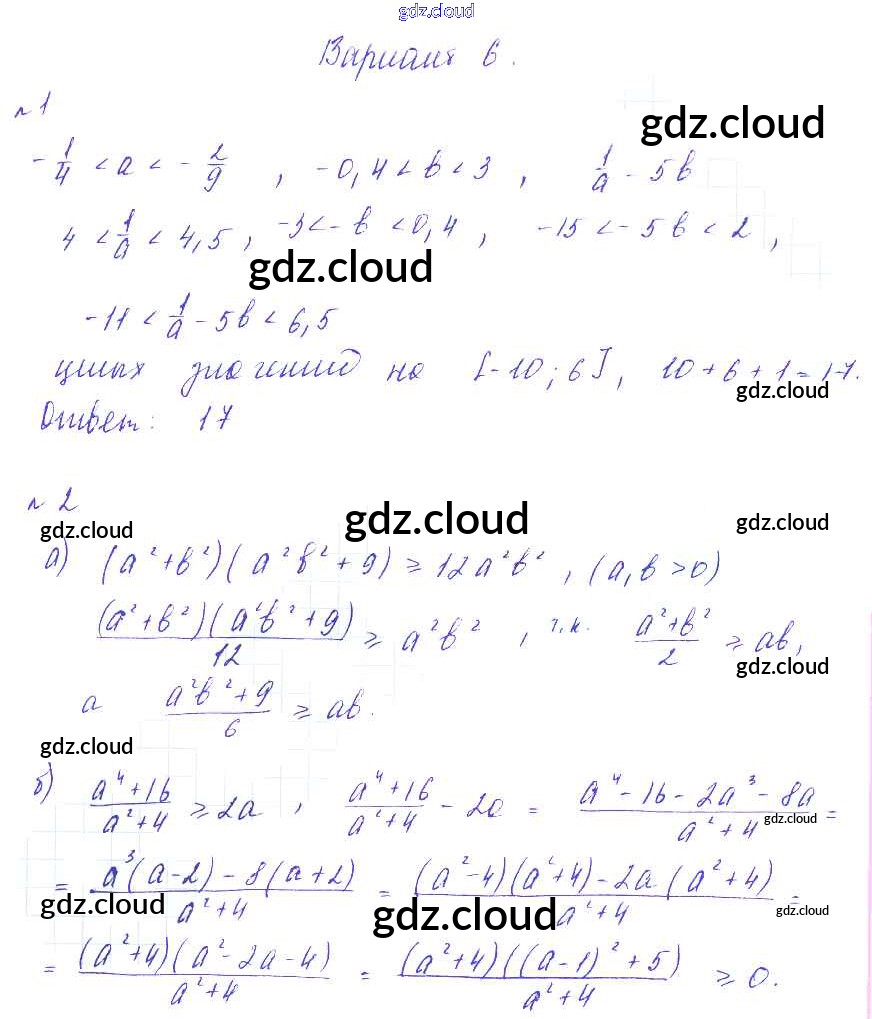 gdz.cloud
Вариант 6.
№1
-1/4 < a < -2/9 , -0,4 < b < 3 , 1/a - 5b
gdz.cloud
4 < 1/a < 4,5 , -3 < -b < 0,4 , -15 < -5b < 2 ,
gdz.cloud
-11 < 1/a - 5b < 6,5
целых значений на [-10; 6], 10 + 6 + 1 = 17.
gdz.cloud
Ответ: 17
№ 2
gdz.cloud gdz.cloud gdz.cloud
а) (a²+b²)(a²b²+9) ≥ 12a²b² , (a, b > 0)
(a²+b²)(a²b²+9)/12 ≥ a²b² , т.к. (a²+b²)/2 ≥ ab,
gdz.cloud
а (a²b²+9)/6 ≥ ab.
gdz.cloud
б) (a⁴+16)/(a²+4) ≥ 2a , (a⁴+16)/(a²+4) - 2a = (a⁴-16-2a³-8a)/(a²+4) =
gdz.cloud
= (a³(a-2)-8(a+2))/(a²+4) = ((a²-4)(a²+4)-2a(a²+4))/(a²+4) =
gdz.cloud gdz.cloud gdz.cloud
= (a²+4)(a²-2a-4)/(a²+4) = (a²+4)((a-1)²+5)/(a²+4) ≥ 0.